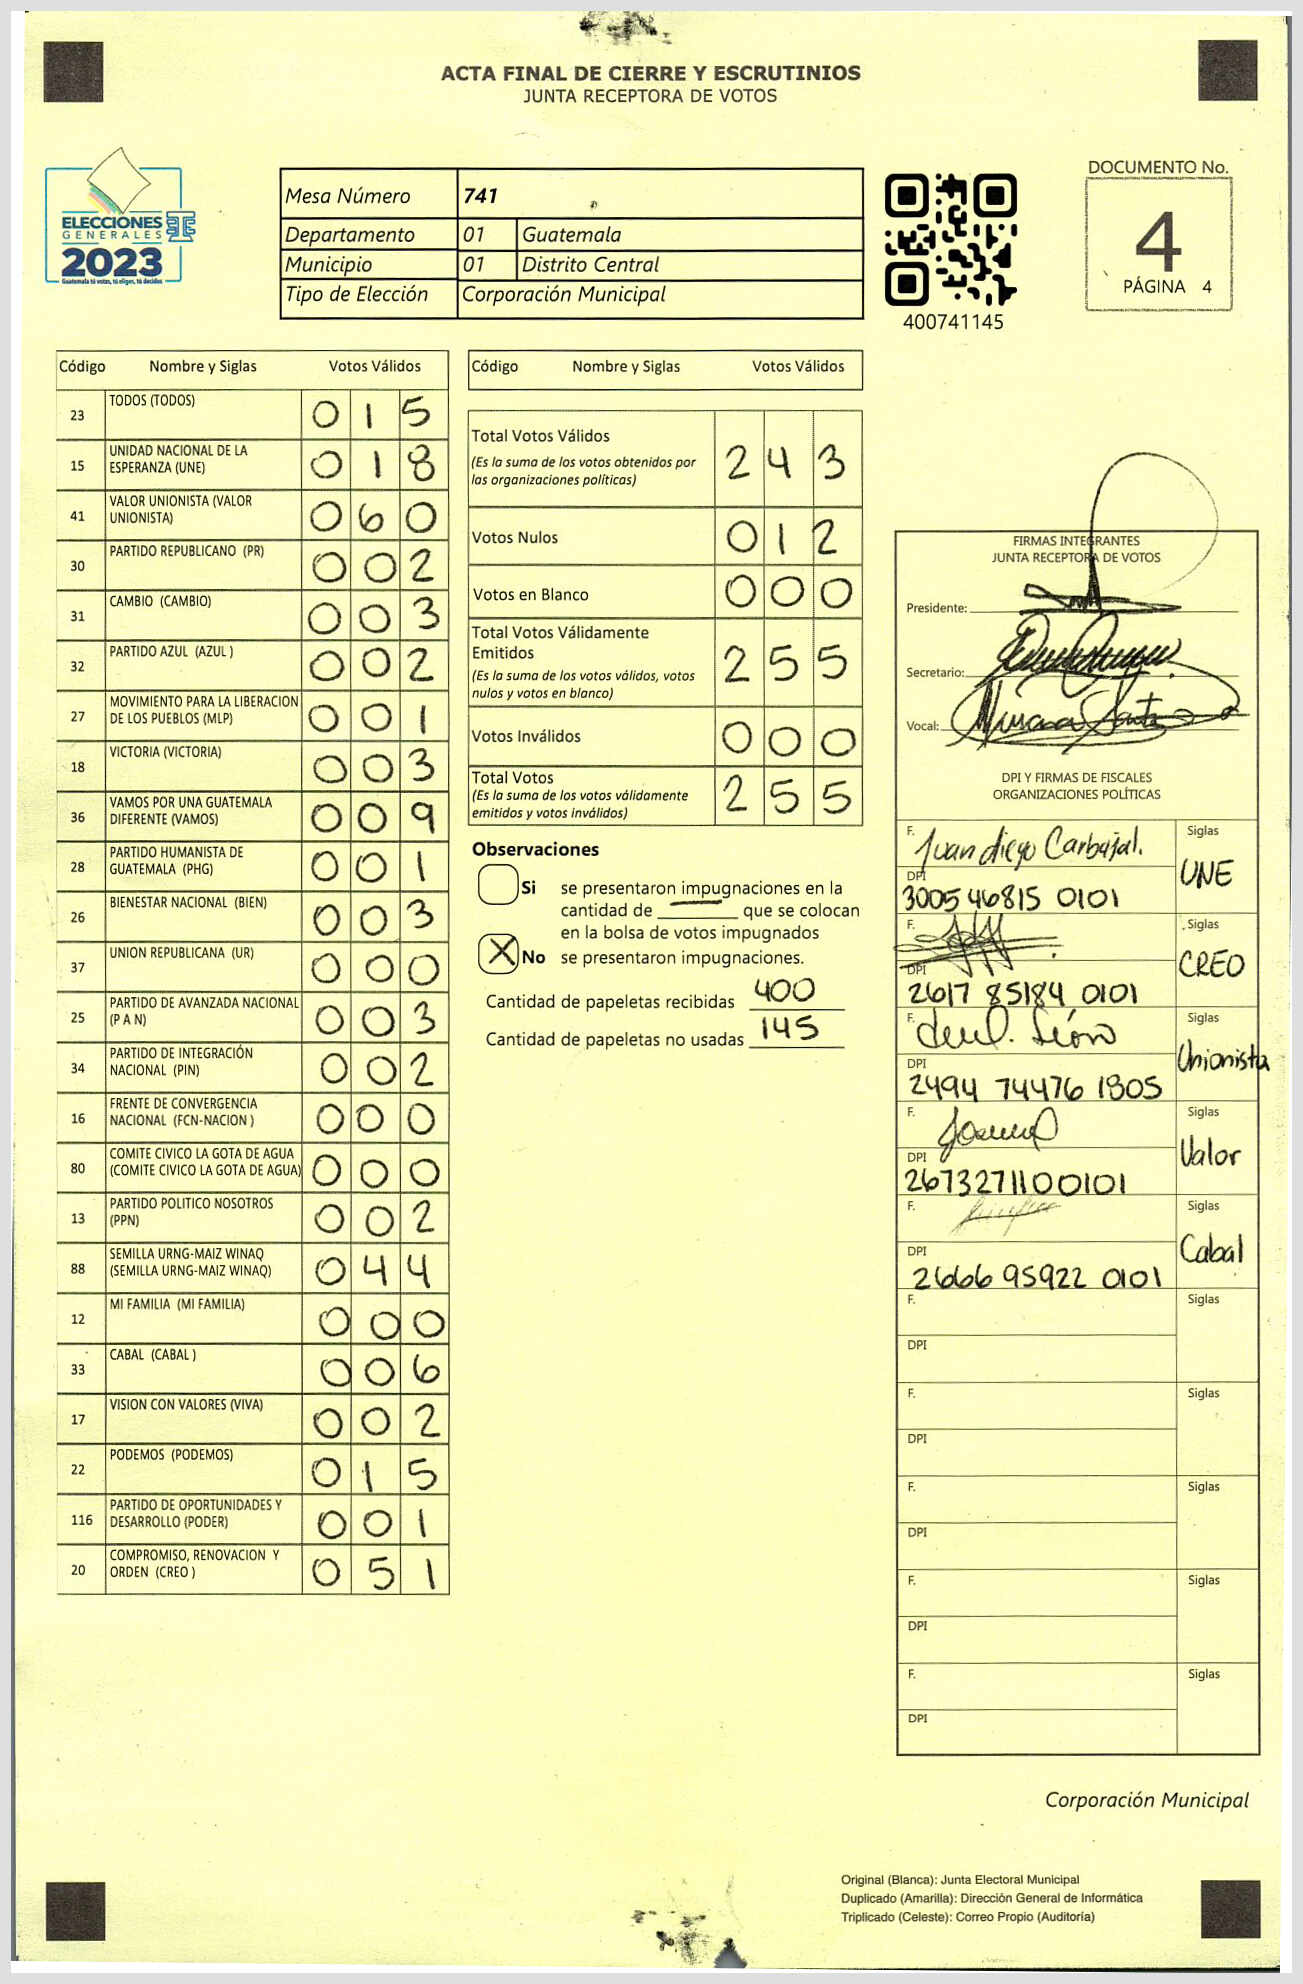 ACTA FINAL DE CIERRE Y ESCRUTINIOS
JUNTA RECEPTORA DE VOTOS
ELECCIONES
GENERALES
2023
Guatemala tú votas, tú eliges, tú decides
Mesa Número 741
Departamento 01 Guatemala
Municipio 01 Distrito Central
Tipo de Elección Corporación Municipal
400741145
DOCUMENTO No.
4
PÁGINA 4
Código Nombre y Siglas Votos Válidos
23 TODOS (TODOS) 0 1 5
15 UNIDAD NACIONAL DE LA
ESPERANZA (UNE) 0 1 8
41 VALOR UNIONISTA (VALOR
UNIONISTA) 0 6 0
30 PARTIDO REPUBLICANO (PR) 0 0 2
31 CAMBIO (CAMBIO) 0 0 3
32 PARTIDO AZUL (AZUL ) 0 0 2
27 MOVIMIENTO PARA LA LIBERACION
DE LOS PUEBLOS (MLP) 0 0 1
18 VICTORIA (VICTORIA) 0 0 3
36 VAMOS POR UNA GUATEMALA
DIFERENTE (VAMOS) 0 0 9
28 PARTIDO HUMANISTA DE
GUATEMALA (PHG) 0 0 1
26 BIENESTAR NACIONAL (BIEN) 0 0 3
37 UNION REPUBLICANA (UR) 0 0 0
25 PARTIDO DE AVANZADA NACIONAL
(P A N) 0 0 3
34 PARTIDO DE INTEGRACIÓN
NACIONAL (PIN) 0 0 2
16 FRENTE DE CONVERGENCIA
NACIONAL (FCN-NACION ) 0 0 0
80 COMITE CIVICO LA GOTA DE AGUA
(COMITE CIVICO LA GOTA DE AGUA) 0 0 0
13 PARTIDO POLITICO NOSOTROS
(PPN) 0 0 2
88 SEMILLA URNG-MAIZ WINAQ
(SEMILLA URNG-MAIZ WINAQ) 0 4 4
12 MI FAMILIA (MI FAMILIA) 0 0 0
33 CABAL (CABAL ) 0 0 6
17 VISION CON VALORES (VIVA) 0 0 2
22 PODEMOS (PODEMOS) 0 1 5
116 PARTIDO DE OPORTUNIDADES Y
DESARROLLO (PODER) 0 0 1
20 COMPROMISO, RENOVACION Y
ORDEN (CREO ) 0 5 1
Código Nombre y Siglas Votos Válidos
Total Votos Válidos 2 4 3
(Es la suma de los votos obtenidos por
las organizaciones políticas)
Votos Nulos 0 1 2
Votos en Blanco 0 0 0
Total Votos Válidamente
Emitidos 2 5 5
(Es la suma de los votos válidos, votos
nulos y votos en blanco)
Votos Inválidos 0 0 0
Total Votos 2 5 5
(Es la suma de los votos válidamente
emitidos y votos inválidos)
Observaciones
Si se presentaron impugnaciones en la
cantidad de ________ que se colocan
en la bolsa de votos impugnados
X No se presentaron impugnaciones.
Cantidad de papeletas recibidas 400
Cantidad de papeletas no usadas 145
FIRMAS INTEGRANTES
JUNTA RECEPTORA DE VOTOS
Presidente:
Secretario:
Vocal:
DPI Y FIRMAS DE FISCALES
ORGANIZACIONES POLÍTICAS
F. Juan diego Carbajal. Siglas
UNE
DPI
3005 46815 0101
F. Siglas
CREO
DPI
2617 85184 0101
F. Siglas
Unionista
DPI
2494 74476 1805
F. Siglas
Valor
DPI
2673271100101
F. Siglas
Cabal
DPI
2666 95922 0101
F. Siglas
DPI
F. Siglas
DPI
F. Siglas
DPI
F. Siglas
DPI
F. Siglas
DPI
Corporación Municipal
Original (Blanca): Junta Electoral Municipal
Duplicado (Amarilla): Dirección General de Informática
Triplicado (Celeste): Correo Propio (Auditoría)